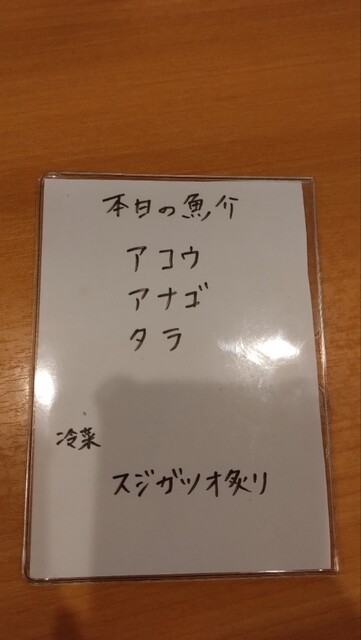 本日の魚介
アコウ
アナゴ
タラ
冷菜
スジガツオ炙り